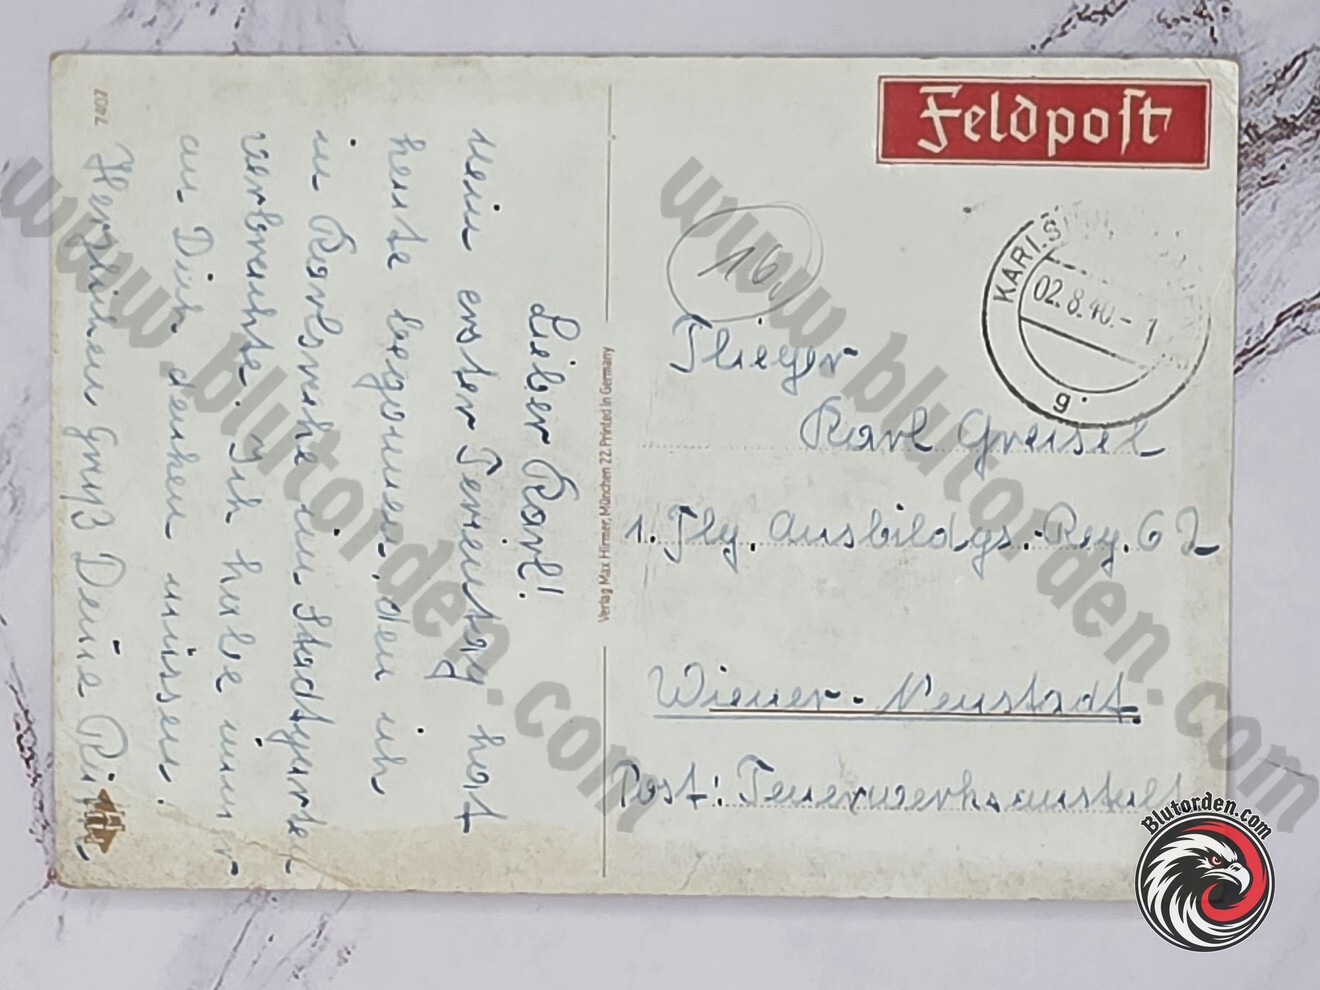 Feldpost
KARLS
02.8.40.-1
g
16
Flieger
Karl Greisel
1. Flg. Ausbildgs. Reg. 62
Wiener-Neustadt
Post: Feuerwerksanstalt
Verlag Max Hirmer, München 22. Printed in Germany
7407
Lieber Karl!
mein erster Ferientag hat
heute begonnen, den ich
in Karlsruhe im Stadtgarten
verbrachte. Ich habe immer
an Dich denken müssen.
Herzlichen Gruß Deine
www.blutorden.com
www.blutorden.com
Blutorden.com